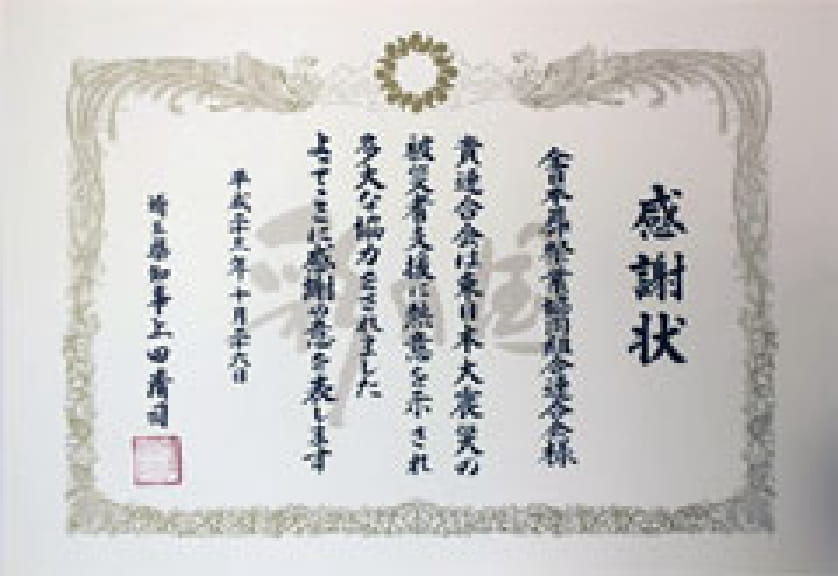 感謝状
全日本葬祭業協同組合連合会様
貴連合会は東日本大震災の
被災者支援に熱意を示され
多大な協力をされました
よってここに感謝の意を表します
平成二十三年十月二十六日
埼玉県知事上田清司
彩の国